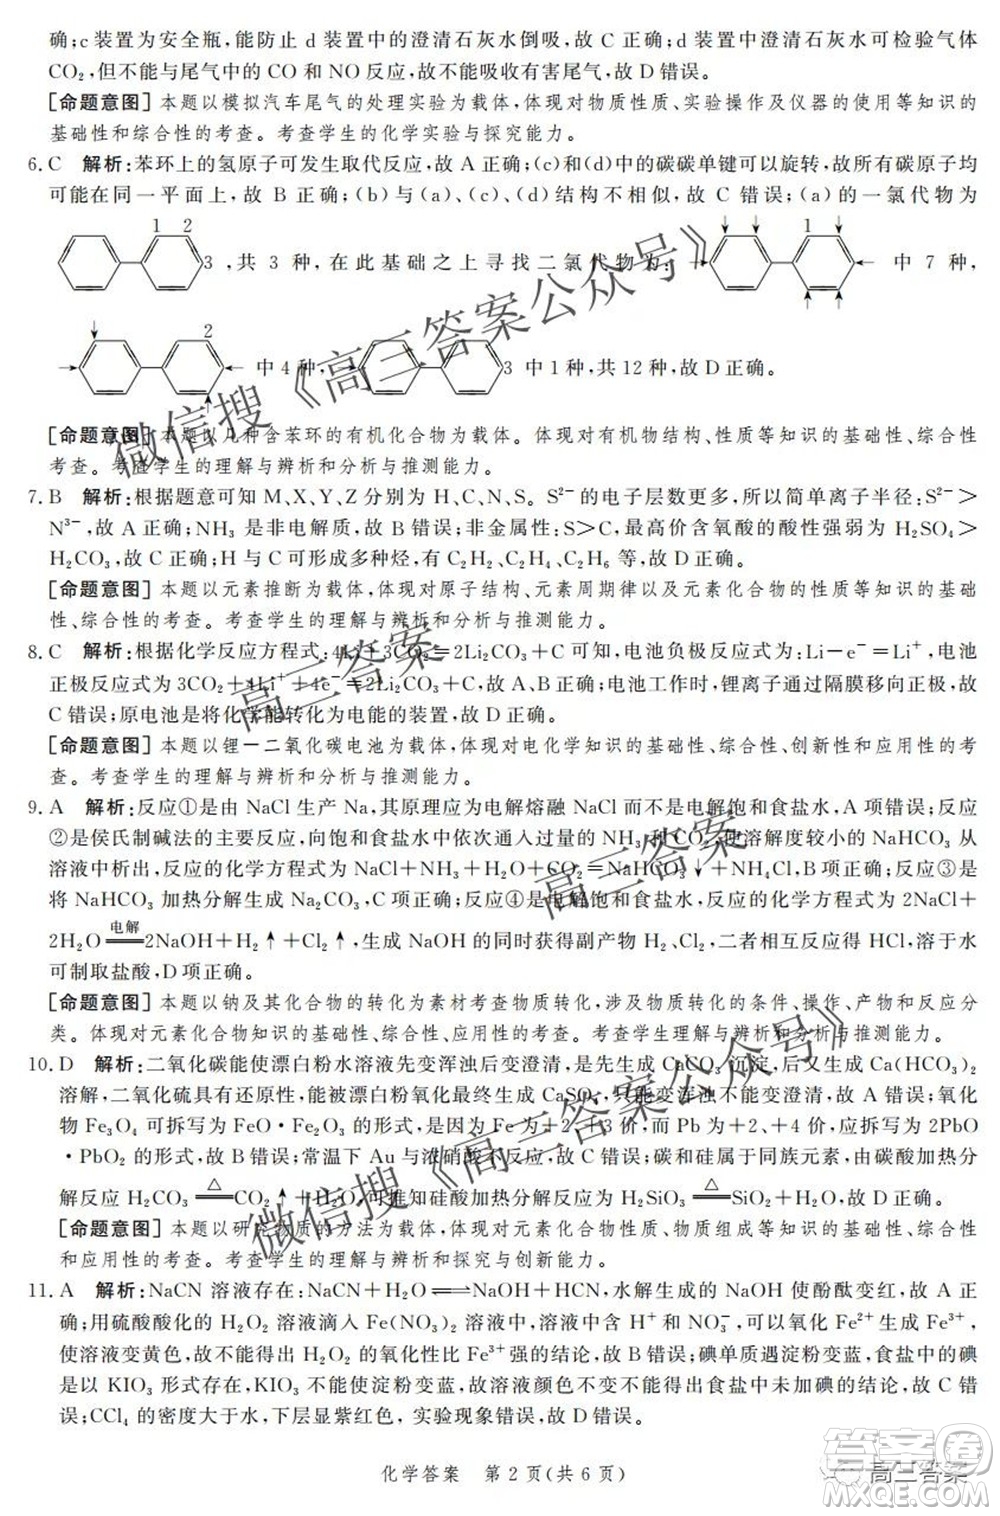 确;c装置为安全瓶,能防止d装置中的澄清石灰水倒吸,故C正确;d装置中澄清石灰水可检验气体
CO₂,但不能与尾气中的CO和NO反应,故不能吸收有害尾气,故D错误。
[命题意图]本题以模拟汽车尾气的处理实验为载体,体现对物质性质、实验操作及仪器的使用等知识的
基础性和综合性的考查。考查学生的化学实验与探究能力。
6.C 解析:苯环上的氢原子可发生取代反应,故A正确;(c)和(d)中的碳碳单键可以旋转,故所有碳原子均
可能在同一平面上,故B正确;(b)与(a)、(c)、(d)结构不相似,故C错误;(a)的一氯代物为
1 2 3,共3种,在此基础之上寻找二氯代物为: 1 中7种,
2 中4种, 3中1种,共12种,故D正确。
[命题意图]本题以几种含苯环的有机化合物为载体。体现对有机物结构、性质等知识的基础性、综合性
考查。考查学生的理解与辨析和分析与推测能力。
7.B 解析:根据题意可知M、X、Y、Z分别为H、C、N、S。S²⁻的电子层数更多,所以简单离子半径:S²⁻>
N³⁻,故A正确;NH₃是非电解质,故B错误;非金属性:S>C,最高价含氧酸的酸性强弱为H₂SO₄>
H₂CO₃,故C正确;H与C可形成多种烃,有C₂H₂、C₂H₆等,故D正确。
[命题意图]本题以元素推断为载体,体现对原子结构、元素周期律以及元素化合物的性质等知识的基础
性、综合性的考查。考查学生的理解与辨析和分析与推测能力。
8.C 解析:根据化学反应方程式:4Li+3CO₂═2Li₂CO₃+C可知,电池负极反应式为:Li−e⁻═Li⁺,电池
正极反应式为3CO₂+4Li⁺+4e⁻═2Li₂CO₃+C;电池工作时,锂离子通过隔膜移向正极,故
C错误;原电池是将化学能转化为电能的装置,故D正确。
[命题意图]本题以锂一二氧化碳电池为载体,体现对电化学知识的基础性、综合性、创新性和应用性的考
查。考查学生的理解与辨析和分析与推测能力。
9.A 解析:反应①是由NaCl生产Na,其原理应为电解熔融NaCl而不是电解饱和食盐水,A项错误;反应
②是侯氏制碱法的主要反应,向饱和食盐水中依次通入足量的NH₃和CO₂,使溶解度较小的NaHCO₃从
溶液中析出,反应的化学方程式为NaCl+NH₃+H₂O+CO₂═NaHCO₃↓+NH₄Cl,B项正确;反应③是
将NaHCO₃加热分解生成Na₂CO₃,C项正确;反应④是电解饱和食盐水,反应的化学方程式为2NaCl+
2H₂O 电解═2NaOH+H₂↑+Cl₂↑,生成NaOH的同时获得副产物H₂、Cl₂,二者相互反应得HCl,溶于水
可制取盐酸,D项正确。
[命题意图]本题以钠及其化合物的转化为素材考查物质转化,涉及物质转化的条件、操作、产物和反应分
类。体现对元素化合物知识的基础性、综合性、应用性的考查。考查学生理解与辨析和分析与推测能力。
10.D 解析:二氧化碳能使漂白粉水溶液先变浑浊后变澄清,是先生成CaCO₃沉淀,后又生成Ca(HCO₃)₂
溶解,二氧化硫具有还原性,能被漂白粉氧化最终生成CaSO₄,只能变浑浊不能变澄清,故A错误;有变
价Fe₃O₄可拆写为FeO·Fe₂O₃的形式,是因为Fe为+2、+3价;而Pb为+2、+4价,应拆写为2PbO
·PbO₂的形式,故B错误;常温下Au与浓硝酸不反应,故C错误;碳和硅属于同族元素,由碳酸加热分
解反应H₂CO₃ △═CO₂↑+H₂O,可推知硅酸加热分解反应为H₂SiO₃ △═SiO₂+H₂O,故D正确。
[命题意图]本题以研究物质的方法为载体,体现对元素化合物性质、物质组成等知识的基础性、综合性
和应用性的考查。考查学生理解与辨析和探究与创新能力。
11.A 解析:NaCN溶液存在:NaCN+H₂O⇌NaOH+HCN,水解生成的NaOH使酚酞变红,故A正
确;用硫酸酸化的H₂O₂溶液滴入Fe(NO₃)₂溶液中,溶液中含H⁺和NO₃⁻,可以氧化Fe²⁺生成Fe³⁺,
使溶液变黄色,故不能得出H₂O₂的氧化性比Fe³⁺强的结论,故B错误;碘单质遇淀粉变蓝,食盐中的碘
是以KIO₃形式存在,KIO₃不能使淀粉变蓝,故溶液颜色不变不能得出食盐中未加碘的结论,故C错
误;CCl₄的密度大于水,下层显紫红色,实验现象错误,故D错误。
化学答案 第2页(共6页)
微信搜《高三答案公众号》
高三答案
高三答案
微信搜《高三答案公众号》
高三答案
MXQE.COM